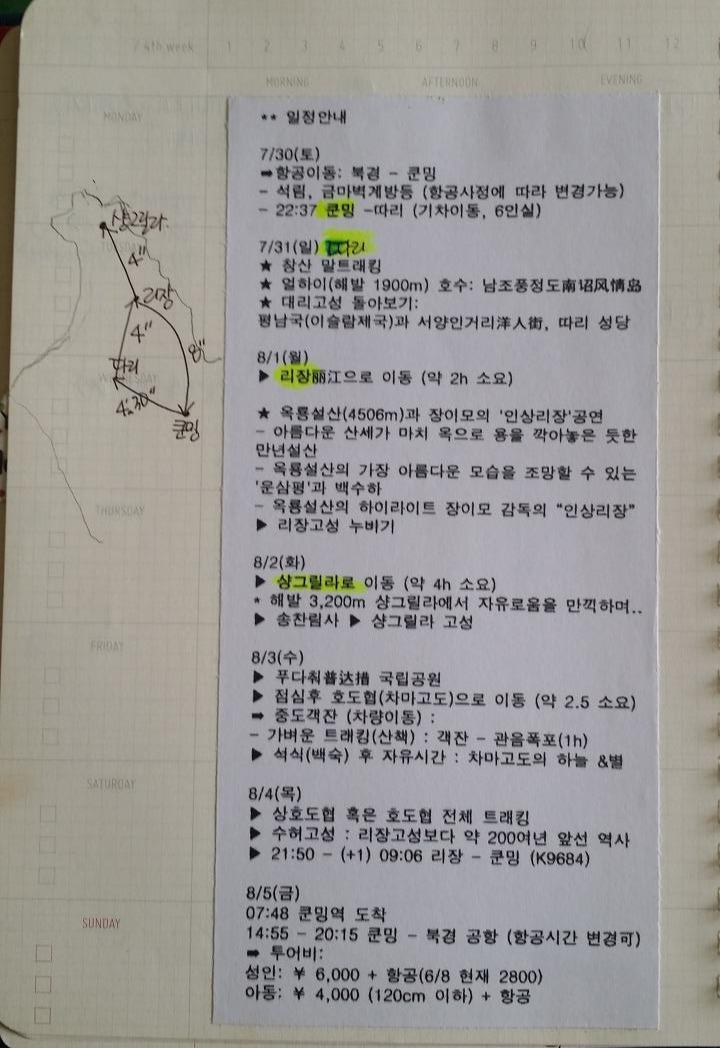 / 4th week 1 2 3 4 5 6 7 8 9 10 11 12
MORNING AFTERNOON EVENING
MONDAY
WEDNESDAY
THURSDAY
FRIDAY
SATURDAY
SUNDAY
샹그릴라
4"
리장
4"
8"
따리
4":30"
쿤밍
** 일정안내
7/30(토)
➡항공이동: 북경 - 쿤밍
- 석림, 금마벽계방등 (항공사정에 따라 변경가능)
- 22:37 쿤밍 -따리 (기차이동, 6인실)
7/31(일) 따리
★ 창산 말트래킹
★ 얼하이(해발 1900m) 호수: 남조풍정도南诏风情岛
★ 대리고성 돌아보기:
평남국(이슬람제국)과 서양인거리洋人街, 따리 성당
8/1(월)
▶ 리장丽江으로 이동 (약 2h 소요)
★ 옥룡설산(4506m)과 장이모의 '인상리장'공연
- 아름다운 산세가 마치 옥으로 용을 깍아놓은 듯한
만년설산
- 옥룡설산의 가장 아름다운 모습을 조망할 수 있는
'운삼평'과 백수하
- 옥룡설산의 하이라이트 장이모 감독의 “인상리장”
▶ 리장고성 누비기
8/2(화)
▶ 샹그릴라로 이동 (약 4h 소요)
* 해발 3,200m 샹그릴라에서 자유로움을 만끽하며..
▶ 송찬림사 ▶ 샹그릴라 고성
8/3(수)
▶ 푸다춰普达措 국립공원
▶ 점심후 호도협(차마고도)으로 이동 (약 2.5 소요)
➡ 중도객잔 (차량이동) :
- 가벼운 트래킹(산책) : 객잔 - 관음폭포(1h)
▶ 석식(백숙) 후 자유시간 : 차마고도의 하늘 &별
8/4(목)
▶ 상호도협 혹은 호도협 전체 트래킹
▶ 수허고성 : 리장고성보다 약 200여년 앞선 역사
▶ 21:50 - (+1) 09:06 리장 - 쿤밍 (K9684)
8/5(금)
07:48 쿤밍역 도착
14:55 - 20:15 쿤밍 - 북경 공항 (항공시간 변경可)
➡ 투어비:
성인: ¥ 6,000 + 항공(6/8 현재 2800)
아동: ¥ 4,000 (120cm 이하) + 항공